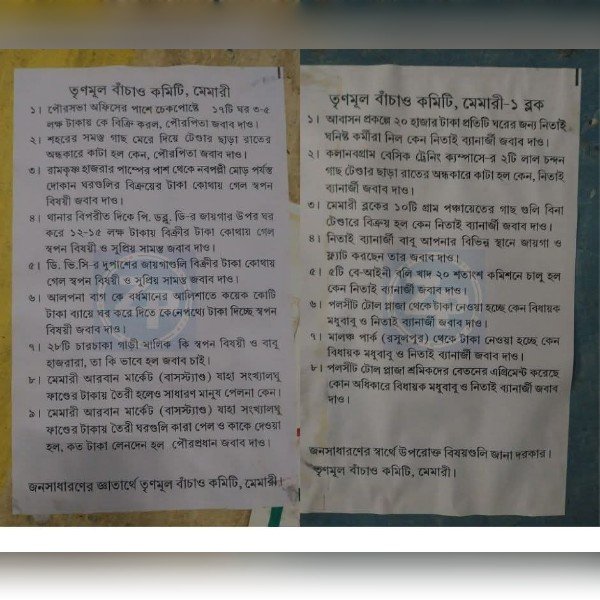 তৃণমূল বাঁচাও কমিটি, মেমারী
১। পৌরসভা অফিসের পাশে চেকপোষ্টে ১৭টি ঘর ৩-৫
লক্ষ টাকায় কে বিক্রি করল, পৌরপিতা জবাব দাও।
২। শহরের সমস্ত গাছ মেরে দিয়ে টেণ্ডার ছাড়া রাতের
অন্ধকারে কাটা হল কেন, পৌরপিতা জবাব দাও।
৩। রামকৃষ্ণ হাজরার পাম্পের পাশ থেকে নবপল্লী মোড় পর্যন্ত
দোকান ঘরগুলির বিক্রয়ের টাকা কোথায় গেল স্বপন
বিষয়ী জবাব দাও।
৪। থানার বিপরীত দিকে পি. ডব্লু. ডি-র জায়গার উপর ঘর
করে ১২-১৫ লক্ষ টাকায় বিক্রীর টাকা কোথায় গেল
স্বপন বিষয়ী ও সুপ্রিয় সামন্ত জবাব দাও।
৫। ডি. ভি.সি-র দুপাশের জায়গাগুলি বিক্রীর টাকা কোথায়
গেল স্বপন বিষয়ী ও সুপ্রিয় সামন্ত জবাব দাও।
৬। আলপনা বাগ কে বর্ধমানের আলিশাতে কয়েক কোটি
টাকা ব্যায়ে ঘর করে দিতে কেনেপথ্যে টাকা দিচ্ছে স্বপন
বিষয়ী জবাব দাও।
৭। ২৮টি চারচাকা গাড়ী মালিক কি স্বপন বিষয়ী ও বাবু
হাজরারা, তা কি ভাবে হল জবাব চাই।
৮। মেমারী আরবান মার্কেট (বাসস্ট্যাণ্ড) যাহা সংখ্যালঘু
ফাণ্ডের টাকায় তৈরী হলেও সাধারণ মানুষ পেলনা কেন।
৯। মেমারী আরবান মার্কেট (বাসস্ট্যাণ্ড) যাহা সংখ্যালঘু
ফাণ্ডের টাকায় তৈরী ঘরগুলি কারা পেল ও কাকে দেওয়া
হল, কত টাকা লেনদেন হল পৌরপ্রধান জবাব দাও।
জনসাধারণের জ্ঞাতার্থে তৃণমূল বাঁচাও কমিটি, মেমারী।
তৃণমূল বাঁচাও কমিটি, মেমারী-১ ব্লক
১। আবাসন প্রকল্পে ২০ হাজার টাকা প্রতিটি ঘরের জন্য নিতাই
ঘনিষ্ট কর্মীরা নিল কেন নিতাই ব্যানার্জী জবাব দাও।
২। কলানবগ্রাম বেসিক ট্রেনিং ক্যাম্পাসে-র ২টি লাল চন্দন
গাছ টেণ্ডার ছাড়া রাতের অন্ধকারে কাটা হল কেন, নিতাই
ব্যানার্জী জবাব দাও।
৩। মেমারী ব্লকের ১০টি গ্রাম পঞ্চায়েতের গাছ গুলি বিনা
টেণ্ডারে বিক্রয় হল কেন নিতাই ব্যানার্জী জবাব দাও।
৪। নিতাই ব্যানার্জী বাবু আপনার বিভিন্ন স্থানে জায়গা ও
ফ্ল্যাট করছেন তার জবাব দাও।
৫। ৫টি বে-আইনী বলি খাদ ২০ শতাংশ কমিশনে চালু হল
কেন নিতাই ব্যানার্জী জবাব দাও।
৬। পলসীট টোল প্লাজা থেকে টাকা নেওয়া হচ্ছে কেন বিধায়ক
মধুবাবু ও নিতাই ব্যানার্জী জবাব দাও।
৭। মালঞ্চ পার্ক (রসুলপুর) থেকে টাকা নেওয়া হচ্ছে কেন
বিধায়ক মধুবাবু ও নিতাই ব্যানার্জী জবাব দাও।
৮। পলসীট টোল প্লাজা শ্রমিকদের বেতনের এগ্রিমেন্ট করেছে
কোন অধিকারে বিধায়ক মধুবাবু ও নিতাই ব্যানার্জী জবাব
দাও।
জনসাধারণের স্বার্থে উপরোক্ত বিষয়গুলি জানা দরকার।
তৃণমূল বাঁচাও কমিটি, মেমারী।